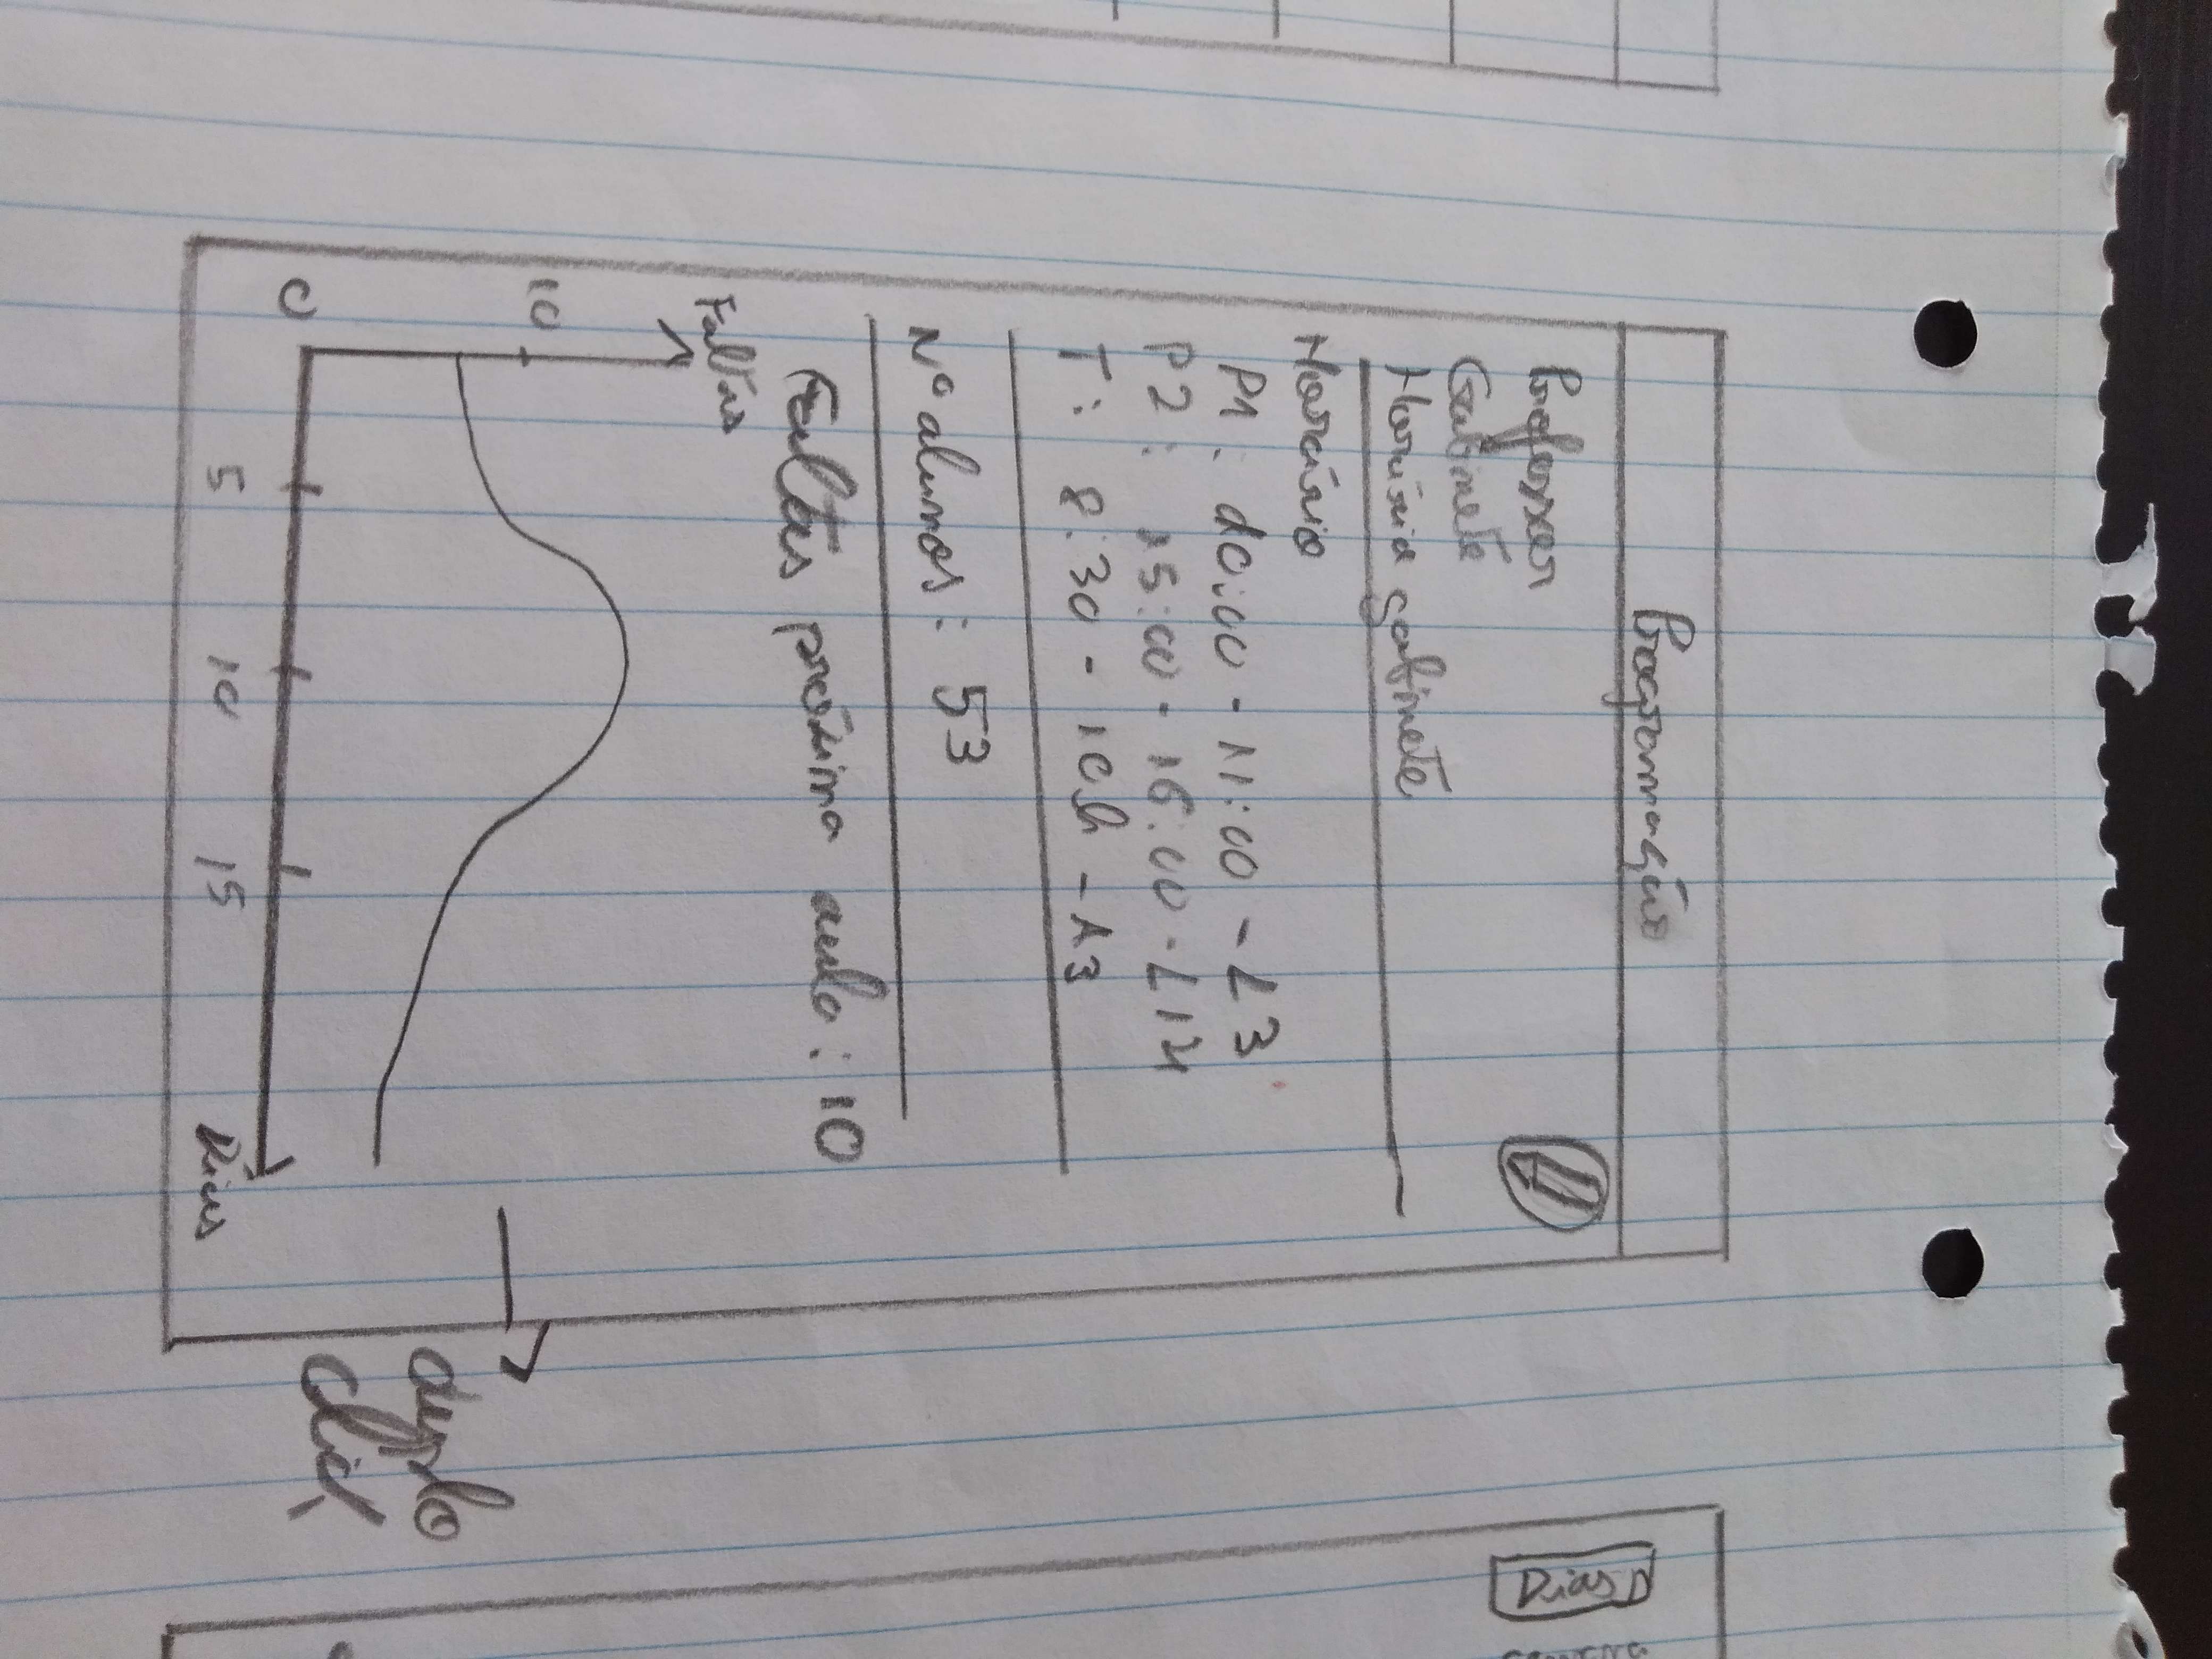 Programação
Professor
Gabinete
Horário gabinete
Horário
P1: 10:00 - 11:00 - L3
P2: 15:00 - 16:00 - L14
T: 8:30 - 10h - A3
Nº alunos: 53
Faltas próxima aula: 10
Faltas
10
0
5 10 15 Dias
duplo
click
Dias